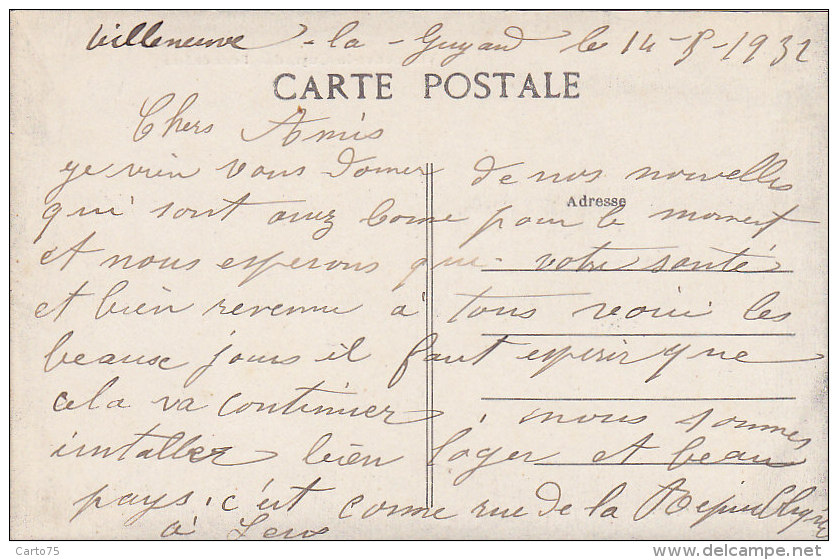 Villeneuve - la - Guyard le 14-5-1932
CARTE POSTALE
Chers Amis
je vien vous donner de nos nouvelles
Adresse
qui sont assez bonne pour le moment
et nous esperons que votre santé
et bien revenu à tous voici les
beause jours il faut esperir que
cela va continuer, nous sommes
installer bien loger et beau
pays, c'est comme rue de la République
à Sens
Carto75
www.delcampe.net